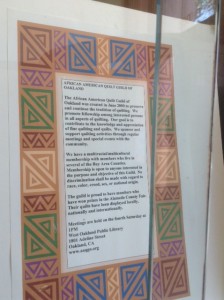 AFRICAN AMERICAN QUILT GUILD OF
OAKLAND
The African American Quilt Guild of
Oakland was created in June 2000 to preserve
and continue the tradition of quilting. We
promote fellowship among interested persons
in all aspects of quilting. Our goal is to
contribute to the knowledge and appreciation
of fine quilting and quilts. We sponsor and
support quilting activities through regular
meetings and special events with the
community.
We have a multicultural
membership with members who live in
several of the Bay Area Counties.
Membership is open to anyone interested in
the purpose and objective of this Guild. No
discrimination shall be made with regard to
race, color, creed, sex, or national origin.
The guild is proud to have members who
have won prizes in the Alameda County Fair.
Their quilts have been displayed locally,
nationally and internationally.
Meetings are held on the fourth Saturday at
1PM
West Oakland Public Library
1801 Adeline Street
Oakland, CA
www.aaqgo.org